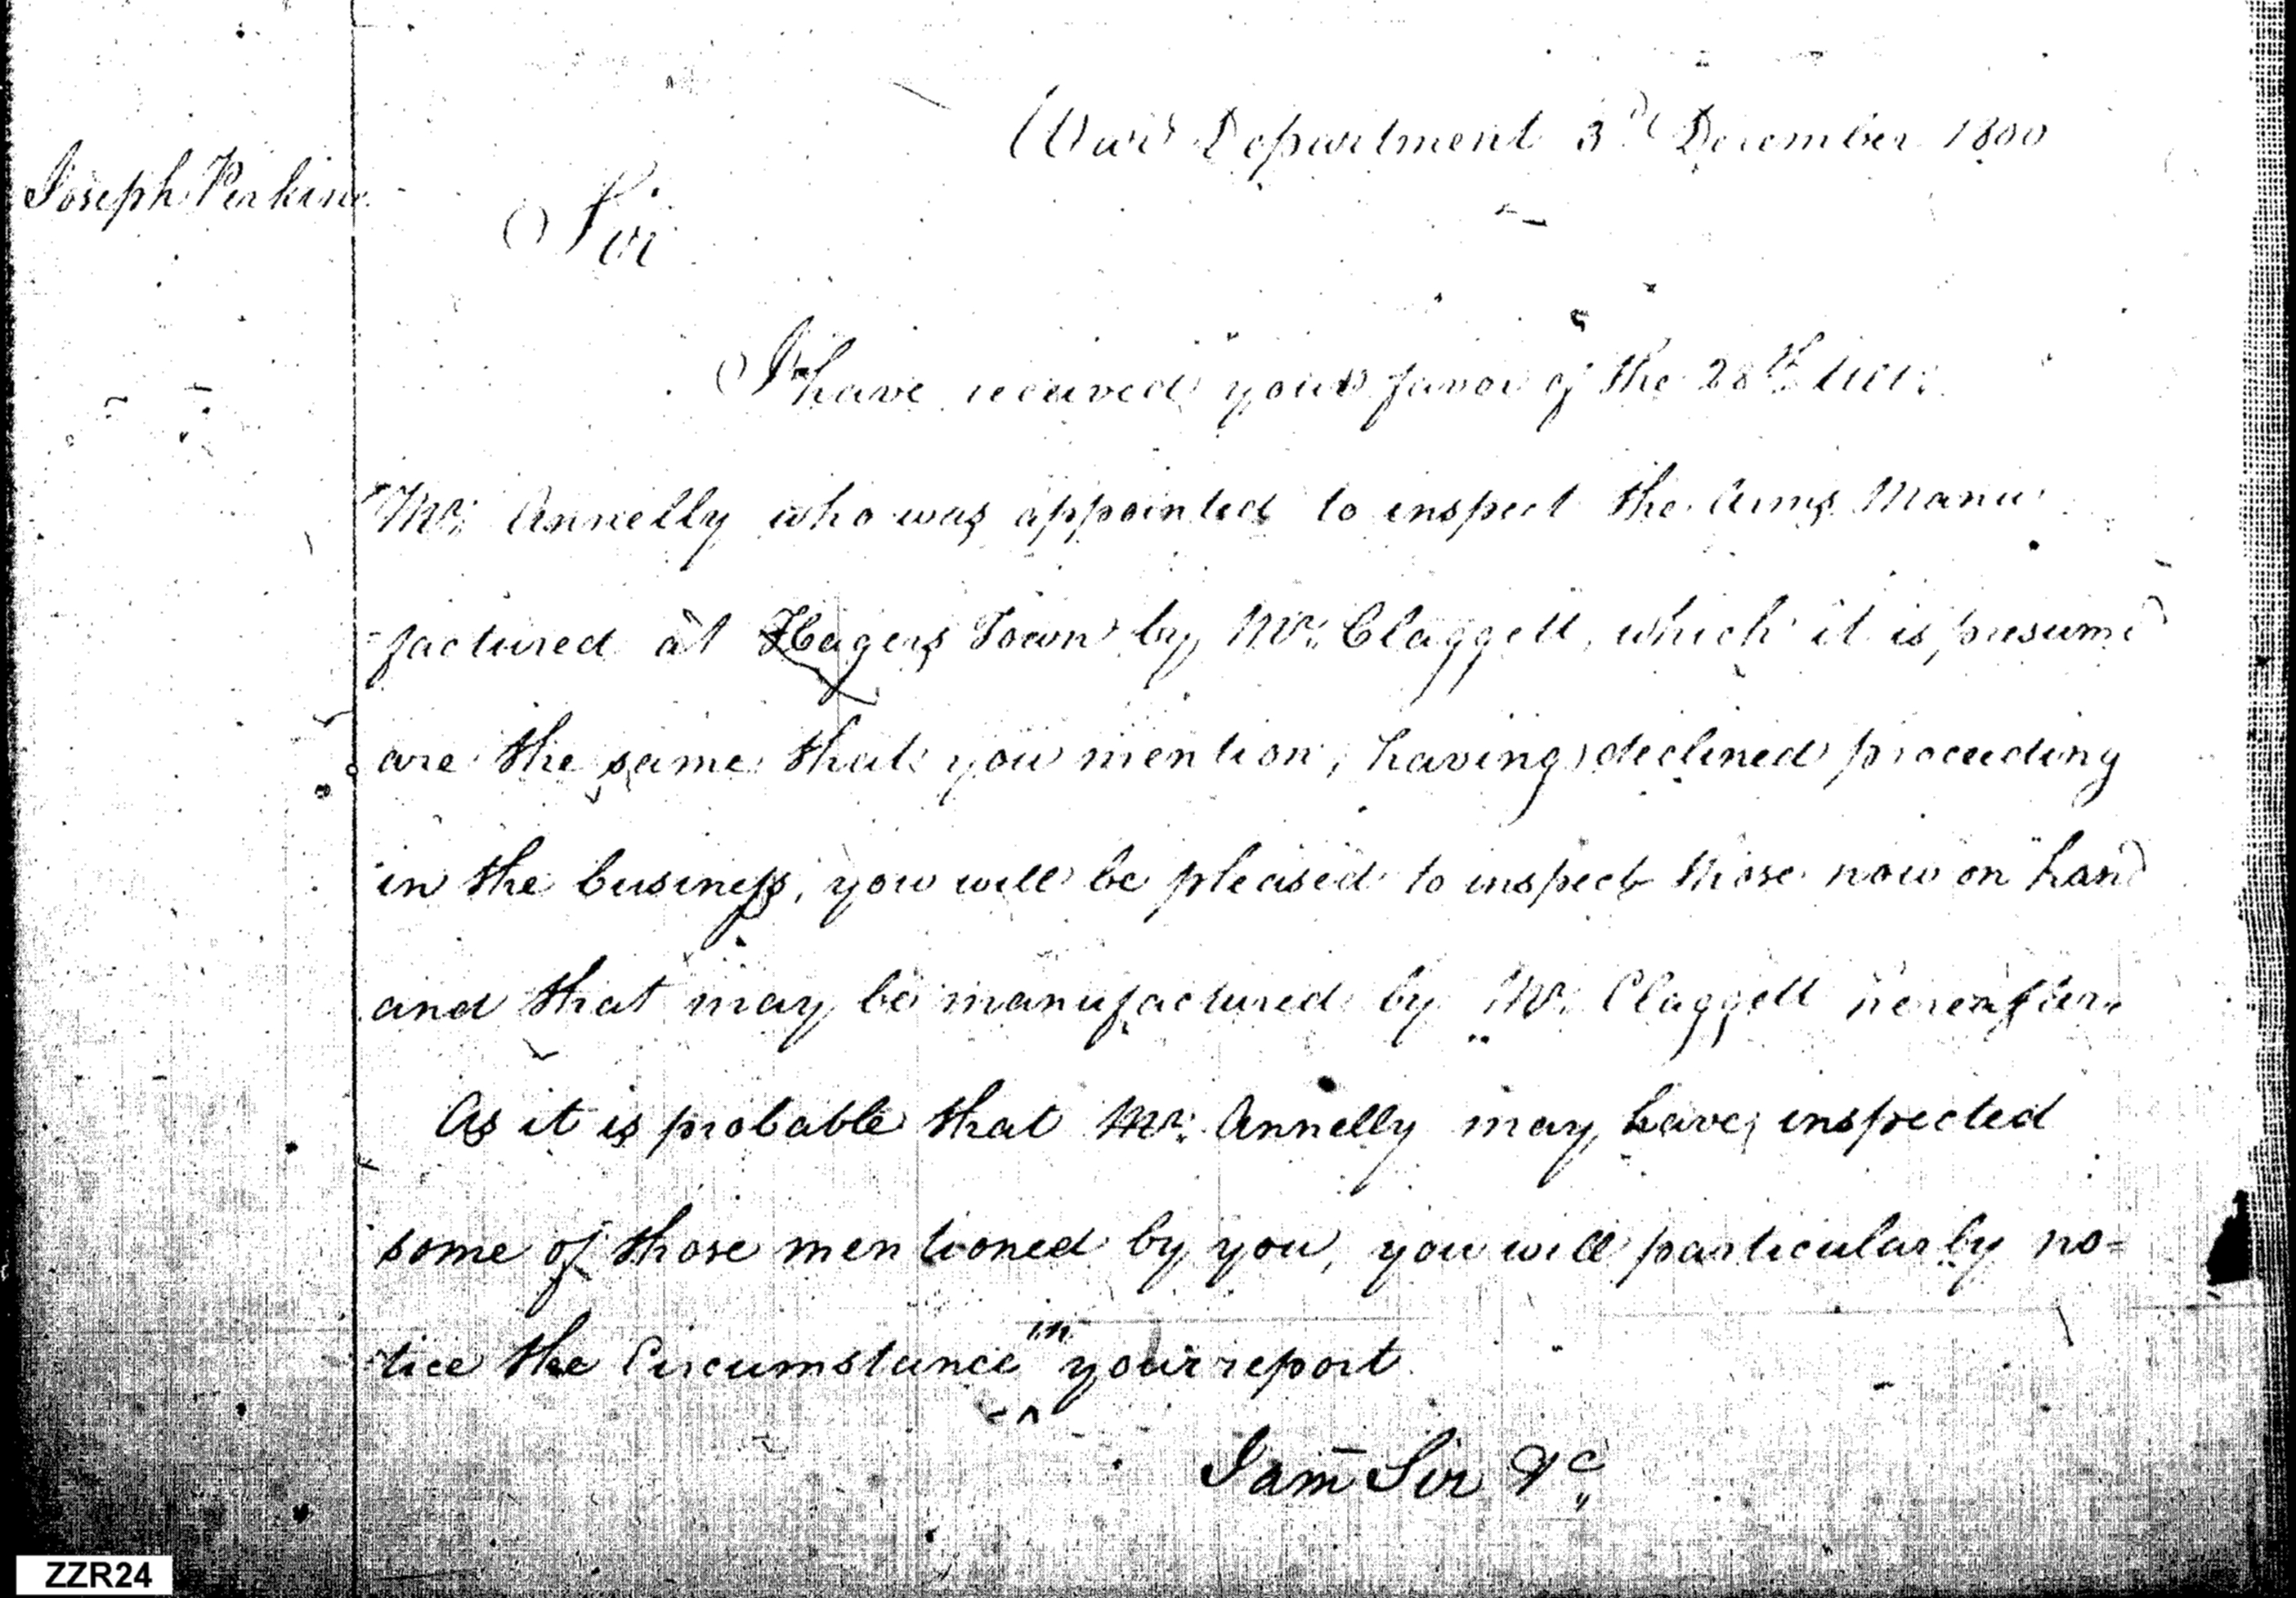 War Department 3d December 1800
Joseph Perkin
Sir
I have received your favor of the 28th
Mr: Annelly who was appointed to inspect the Arms Manu-
-factured at Hagers Town by Mr: Claggett, which it is presumd
are the same that you mention, having declined proceeding
in the business, you will be pleased to inspect those now on hand
and that may be manufactured by Mr: Claggett hereafter.
As it is probable that Mr: Annelly may have inspected
some of those mentioned by you, you will particularly no=
tice the Circumstance in your report.
I am Sir &c
ZZR24